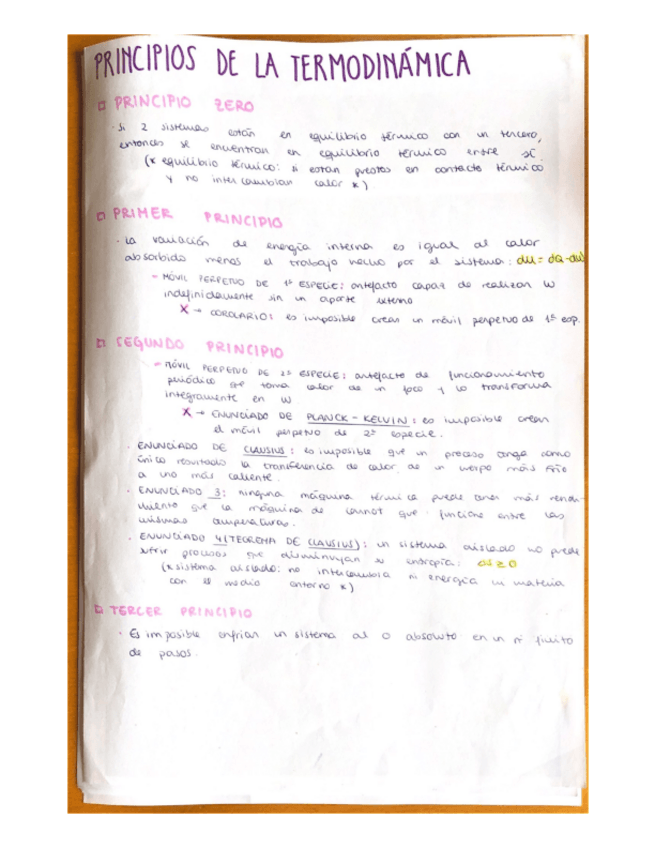 PRINCIPIOS DE LA TERMODINÁMICA
PRINCIPIO ZERO
· Si 2 sistemas están en equilibrio térmico con un tercero,
entonces se encuentran en equilibrio térmico entre sí
(* equilibrio térmico: si están puestos en contacto térmico
y no intercambian calor *)
PRIMER PRINCIPIO
· La variación de energía interna es igual al calor
absorbido menos el trabajo hecho por el sistema: dU = dQ - dW
- MÓVIL PERPETUO DE 1ª ESPECIE: artefacto capaz de realizar W
indefinidamente sin un aporte externo
X → COROLARIO: es imposible crear un móvil perpetuo de 1ª esp.
SEGUNDO PRINCIPIO
- MÓVIL PERPETUO DE 2ª ESPECIE: artefacto de funcionamiento
periódico que toma calor de un foco y lo transforma
íntegramente en W
X → ENUNCIADO DE PLANCK - KELVIN: es imposible crear
el móvil perpetuo de 2ª especie.
· ENUNCIADO DE CLAUSIUS: es imposible que un proceso tenga como
único resultado la transferencia de calor de un cuerpo más frío
a uno más caliente.
· ENUNCIADO 3: ninguna máquina térmica puede tener más rendi-
miento que la máquina de Carnot que funcione entre las
mismas temperaturas.
· ENUNCIADO 4 (TEOREMA DE CLAUSIUS): un sistema aislado no puede
sufrir procesos que disminuyan su entropía: ds ≥ 0
(* sistema aislado: no intercambia ni energía ni materia
con el medio entorno *)
TERCER PRINCIPIO
· Es imposible enfriar un sistema al 0 absoluto en un nº finito
de pasos.